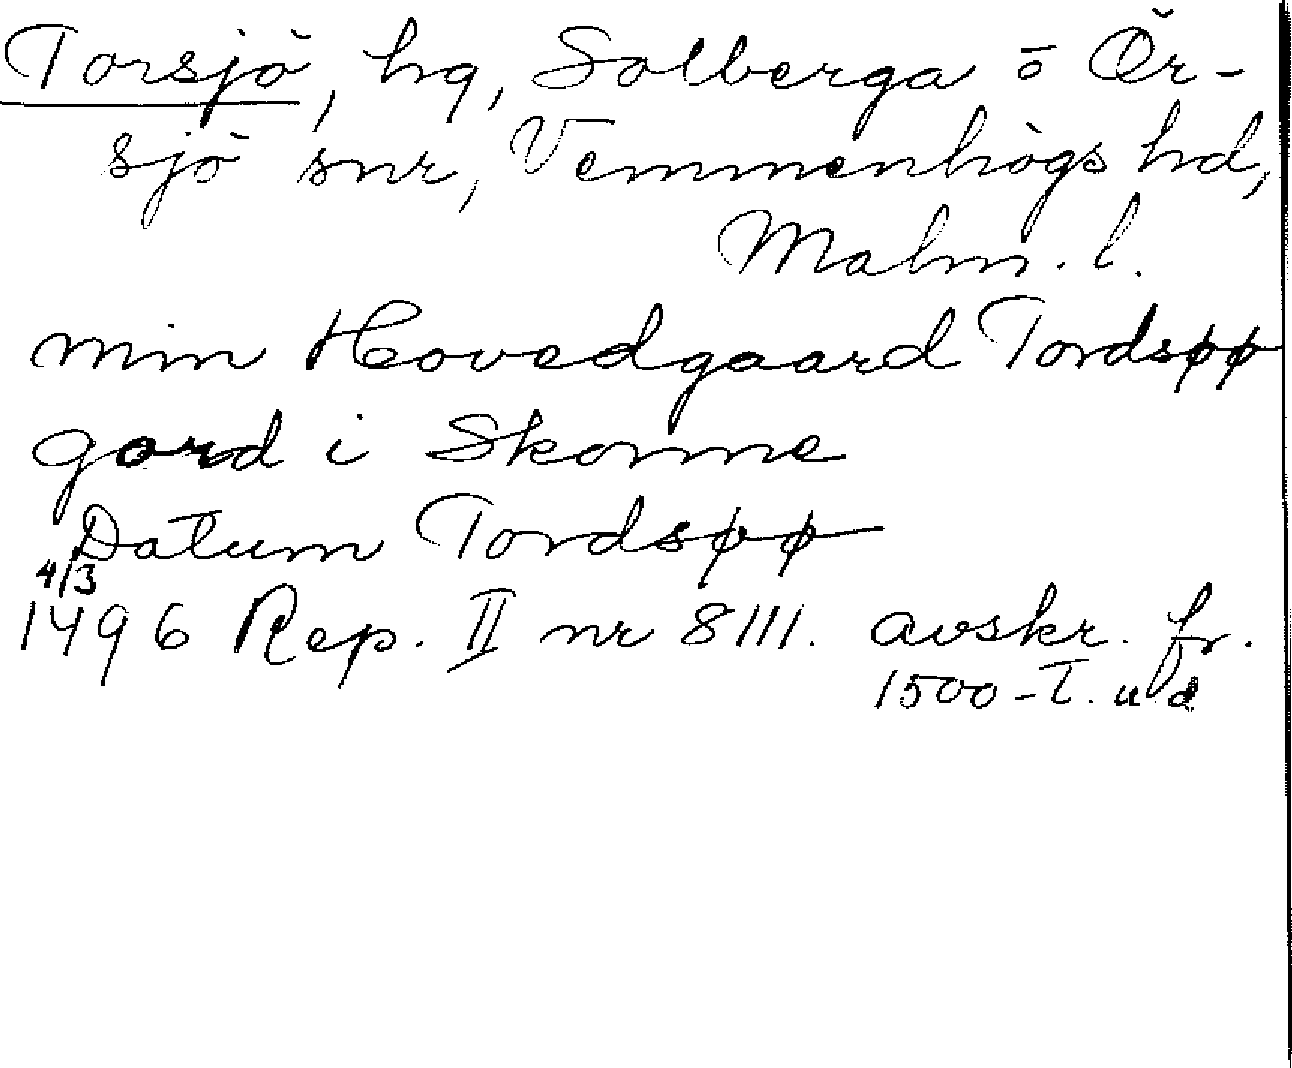 Torsjö, hg, Solberga o Ör-
sjö snr, Vemmenhögs hd,
Malm. l.
min Hovedgaard Tordsøø
gord i Skonne
Datum Tordsøø
4/3
1496 Rep. II nr 8111. avskr. fr.
1500-T.